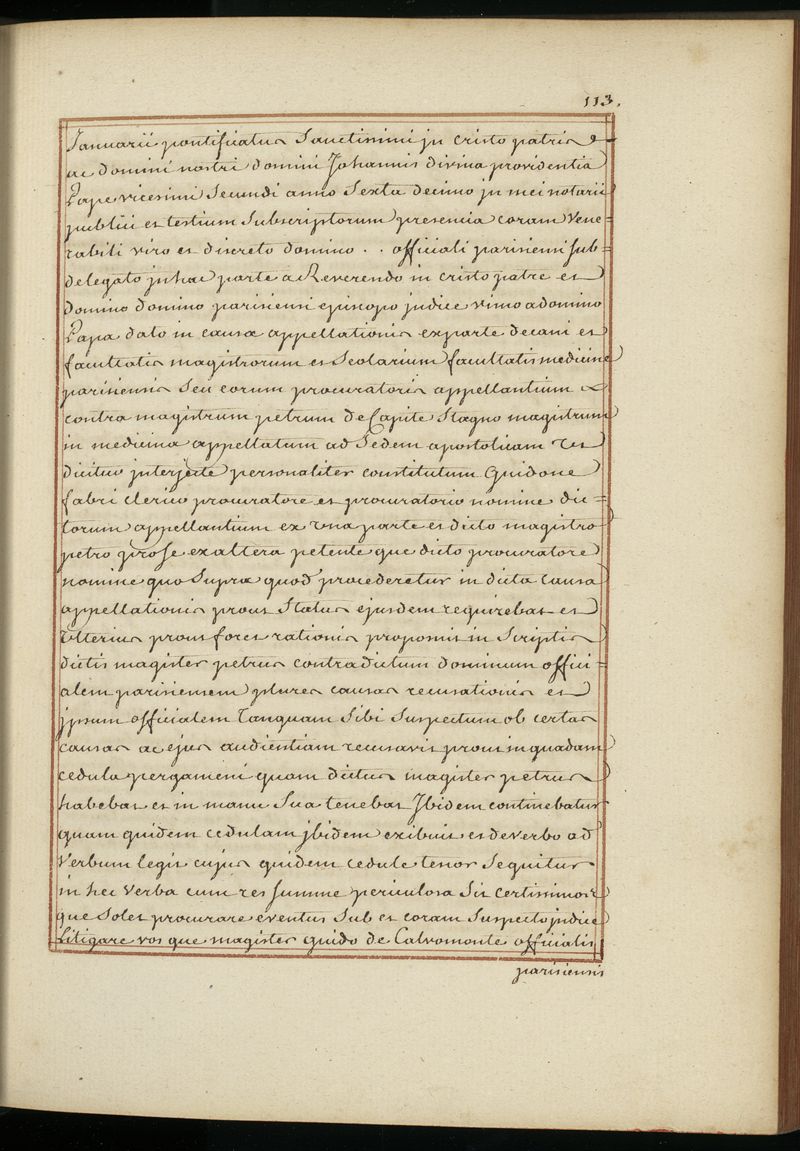 113.
Januarii pontificatus Sanctissimi in cristo patris
ac domini nostri domini Johannis divina providentia
Pape vicesimi Secundi anno Sexta decimo in mei notarii
publici et testium Subscriptorum presencia coram Vene=
rabili viro et discreto domino . . officiali parisiensi sub=
delegato in hac parte a Reverendo in cristo patre et
domino domino parisiensi episcopo judice vimo a domino
Papa dato in causa appellationis ex parte decani et
facultatis magistrorum et Scolarium facultatis medicine
parisiensis Seu eorum procuratoris appellantium
contra magistrum petrum de Capite Stagno magistrum
in medicina appellatum ad Sedem apostolicam Ut
dicitur interjecte personaliter constitutum Guidone
fabri clerico procuratore et procuratorio nomine dic=
torum appellantium ex Una parte et dicto magistro
petro pro se ex altera petente que dicto procuratore
nomine quo Supra quod procederetur in dicta causa
appellationis prout Status ejusdem requirebat et
Ulterius prout foret rationis proponit in Scriptis
dictis magister petrus contra dictum dominum offici=
alem parisiensem plures causas recusationis et
ipsum officialem Tanquam Sibi Suspectum ob certas
causas ac ejus audientiam recusavit prout in quadam
cedula pergameni quam dictus magister petrus
habebat et in manu Sua tenebat Ibidem continebatur
quam quidem cedulam ibidem exibuit et de verbo ad
Verbum legit cujus quidem cedule tenor Sequitur
in hec Verba cum res summe periculosa Sit certissimos
que Solet procurare eventus Sub et coram Suspecto judice
Litigare vos que magister guido de Calvomonte officialis
parisiensis